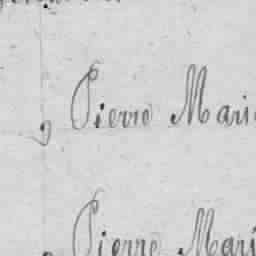 Pierre Mari
Pierre Mari